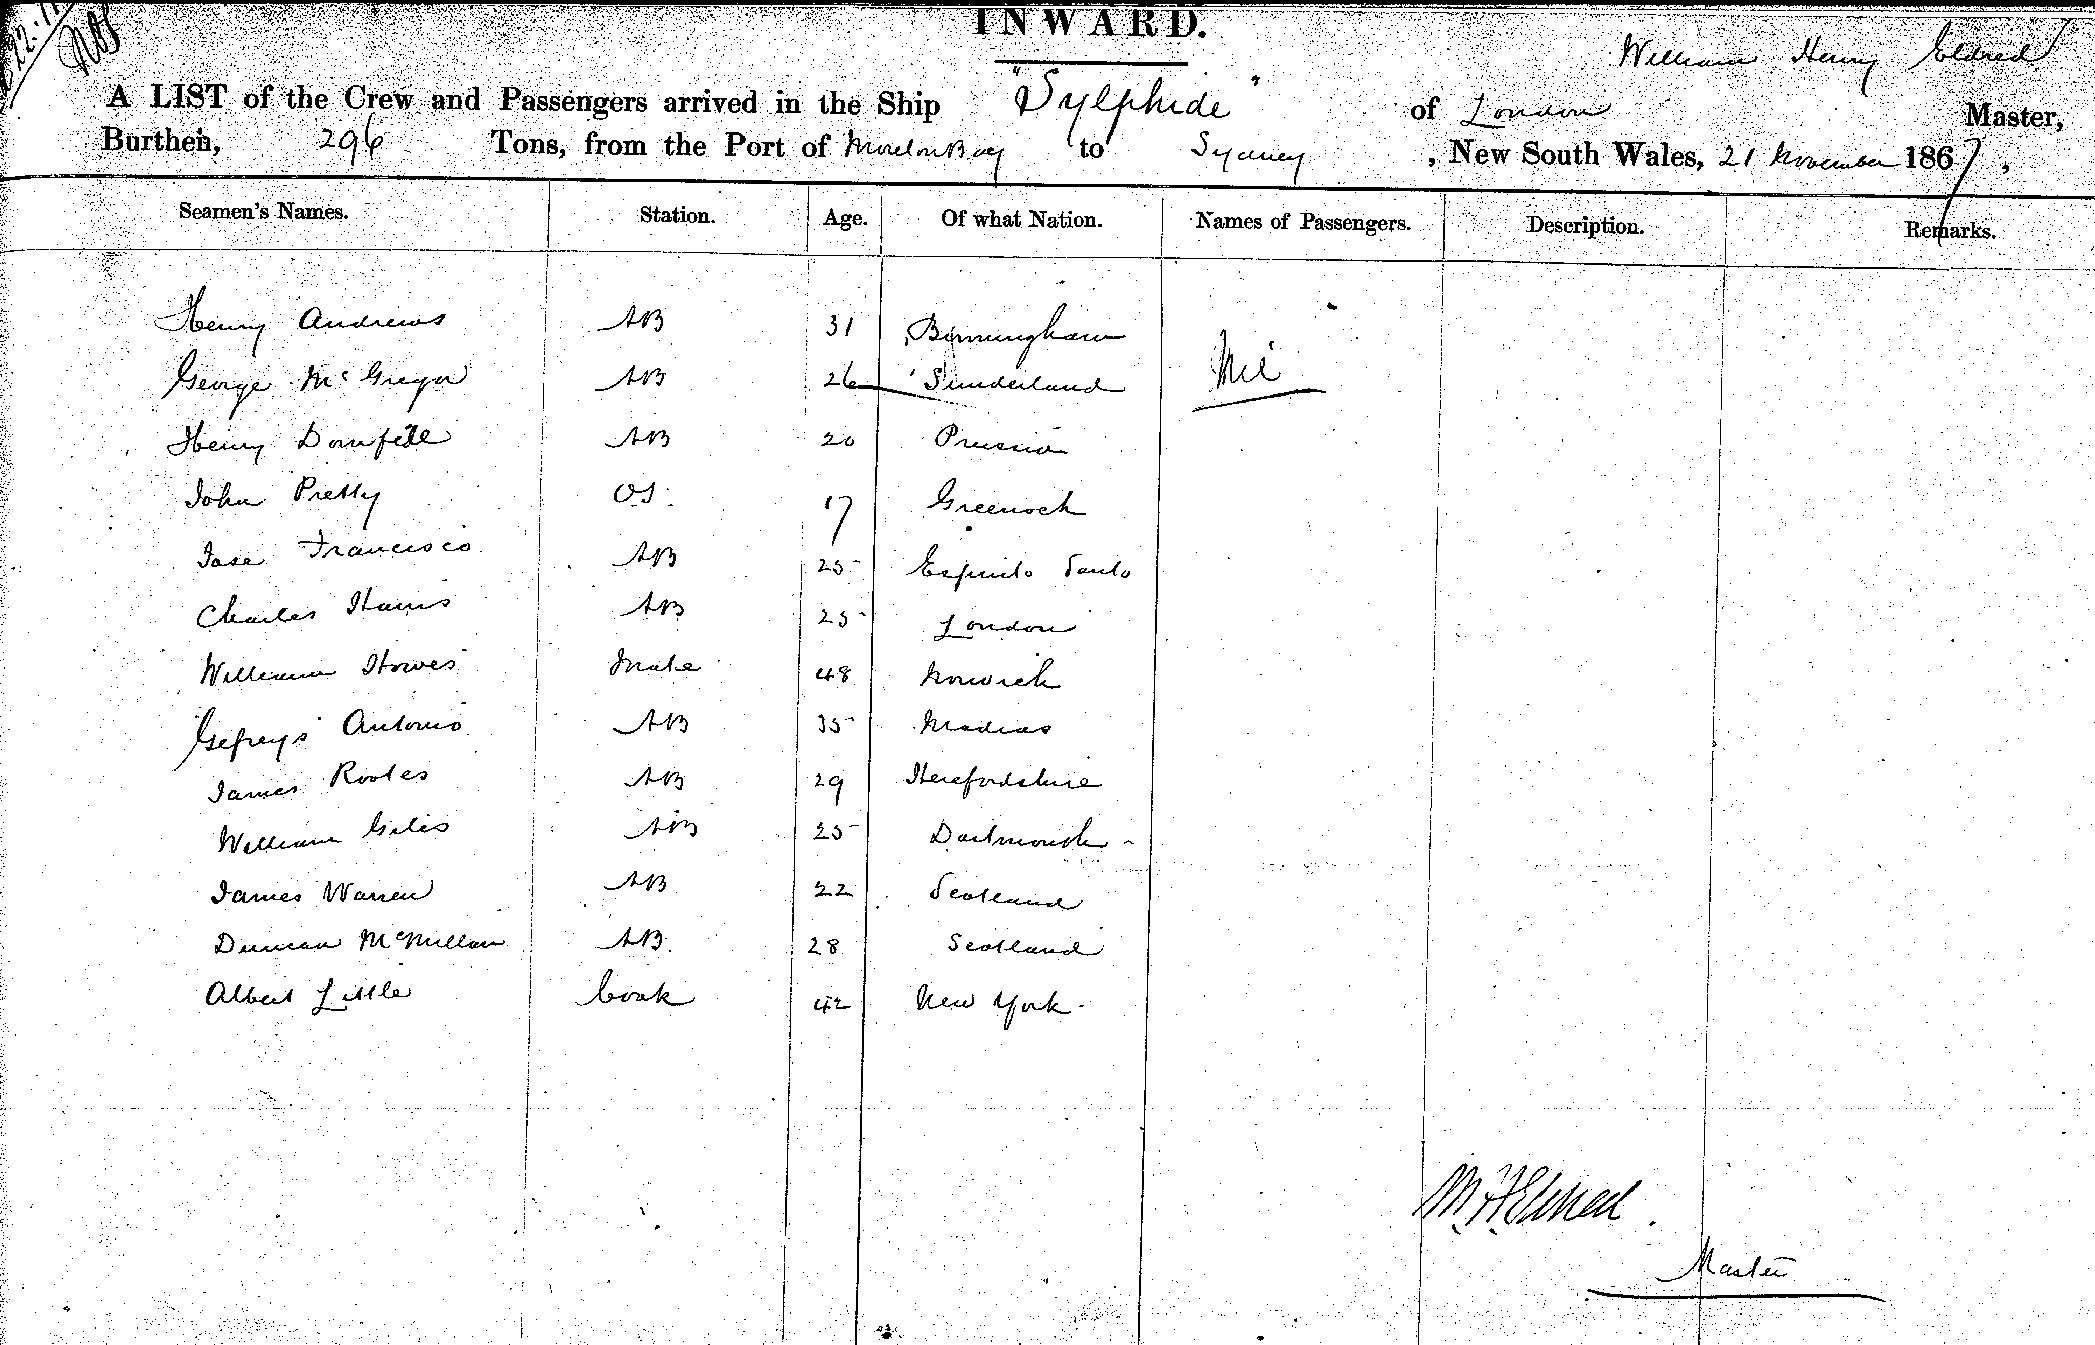 INWARD.
William Henry Eldred
A LIST of the Crew and Passengers arrived in the Ship "Sylphide" of London Master,
Burthen, 296 Tons, from the Port of Moreton Bay to Sydney, New South Wales, 21 November 1867,
Seamen's Names. Station. Age. Of what Nation. Names of Passengers. Description. Remarks.
Henry Andrews AB 31 Birmingham
George McGregor AB 26 Sunderland Nil
Henry AB 20 Prussia
John Pretty OS. 17 Greenock
Jose Francisco AB 25 Espirito Santo
Charles Harris AB 25 London
William Howes Mate 48 Norwich
Gefreys Antonio AB 35 Madras
James Rootes AB 29 Herefordshire
William Giles AB 25 Dartmouth
James Warren AB 22 Scotland
Duncan McMillan AB. 28 Scotland
Albert Little Cook 42 New York
W.H. Eldred.
Master